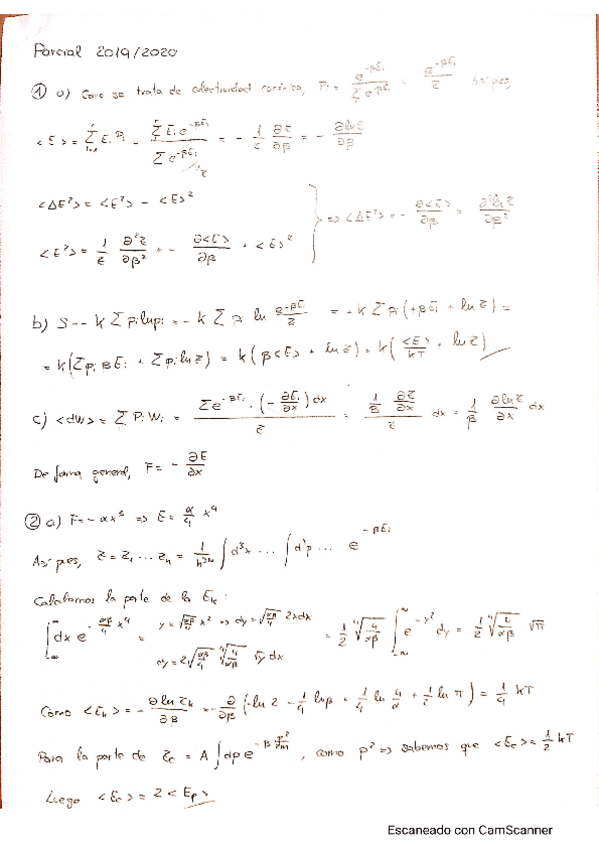 Parcial 2019/2020
① a) Como se trata de colectividad canónica, Pᵢ = e^{-βEᵢ} / Σ e^{-βEᵢ} = e^{-βEᵢ} / Z Así pues,
<E> = Σ Eᵢ Pᵢ = Σ Eᵢ e^{-βEᵢ} / Σ e^{-βEᵢ} = - 1/Z ∂Z/∂β = - ∂lnZ/∂β
<ΔE²> = <E²> - <E>²
=> <ΔE²> = - ∂<E>/∂β = ∂²lnZ/∂β²
<E²> = 1/Z ∂²Z/∂β² = - ∂<E>/∂β + <E>²
b) S = - k Σ pᵢ lnpᵢ = - k Σ pᵢ ln e^{-βEᵢ}/Z = + k Σ pᵢ (+βEᵢ + lnZ) =
= k(Σpᵢ βEᵢ + Σpᵢ lnZ) = k(β<E> + lnZ) = k(<E>/kT + lnZ)
c) <dW> = Σ Pᵢ Wᵢ = Σe^{-βEᵢ} · (-∂Eᵢ/∂x) dx / Z = 1/β ∂Z/∂x / Z dx = 1/β ∂lnZ/∂x dx
De forma general, F = - ∂E/∂x
② a) F = - αx³ => E = α/4 x⁴
Así pues, Z = Z₁ ... Zₙ = 1/h^{3N} ∫ d³x ... ∫ d³p ... e^{-βEᵢ}
Calculamos la parte de la Eₖ :
∫_{-∞}^{∞} dx e^{-αβ/4 x⁴} = y = √(αβ/4) x² => dy = √(αβ/4) 2xdx = 1/2 ⁴√(4/αβ) ∫_{-∞}^{∞} e^{-y²} dy = 1/2 ⁴√(4/αβ) √π
dy = 2√(αβ/4) ⁴√(4/αβ) √y dx
Como <Eₖ> = - ∂ln Zₖ/∂β = - ∂/∂β (-ln 2 - 1/4 lnβ + 1/4 ln 4/α + 1/2 ln π) = 1/4 kT
Para la parte de Z_c = A ∫dp e^{-β p²/2m}, como p² => sabemos que <E_c> = 1/2 kT
Luego <E_c> = 2 <E_p>
Escaneado con CamScanner